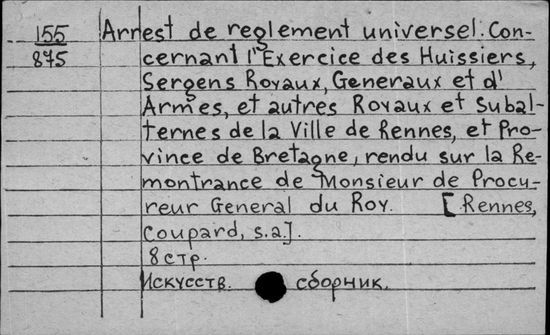 155 Arrest de reglement universel. Con-
875 cernant l'Exercice des Huissiers,
Sergens Royaux, Generaux et d'
Armes, et autres Royaux et Subal-
ternes de la Ville de Rennes, et Pro-
vince de Bretagne, rendu sur la Re-
montrance de Monsieur de Procu-
reur General du Roy. [Rennes,
Coupard, s.a.].
8 стр.
Искусств. сборник.